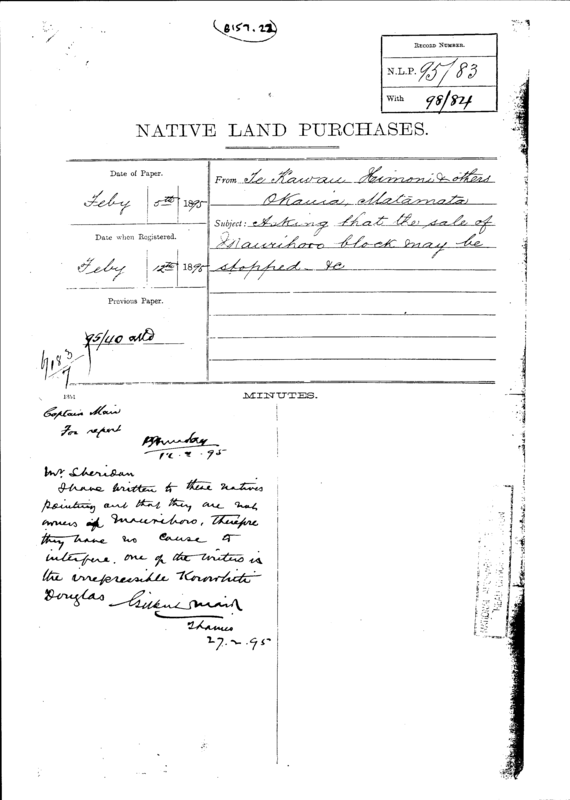 B157.22
RECORD NUMBER.
N.L.P. 95/83
With 98/84
NATIVE LAND PURCHASES.
Date of Paper.
Feby 5th 1895
Date when Registered.
Feby 12th 1895
Previous Paper.
95/40
From Te Kawau Himoni & others
Okauia, Matamata
Subject: Asking that the sale of
Maurihoro block may be
stopped - &c
MINUTES.
Captain Mair
For report
12.2.95
Mr Sheridan
I have written to these natives
pointing out that they are not
owners of Maurihoro, therefore
they have no cause to
interfere. one of the writers is
the irrepressible Korowhiti
Douglas Gilbert Mair
Thames
27.2.95